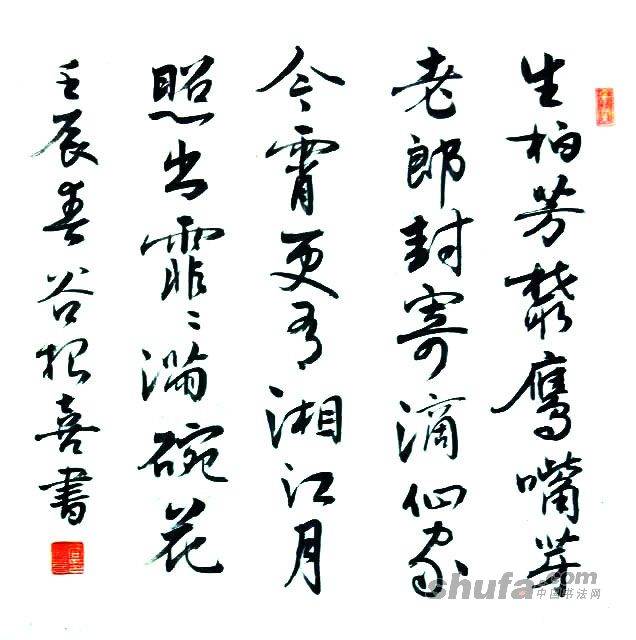 生柏芳叢鹰嘴芽
老郎封寄滴仙家
今霄更有湘江月
照出霏々满碗花
壬辰春谷根喜書
shufa.com
中国书法网